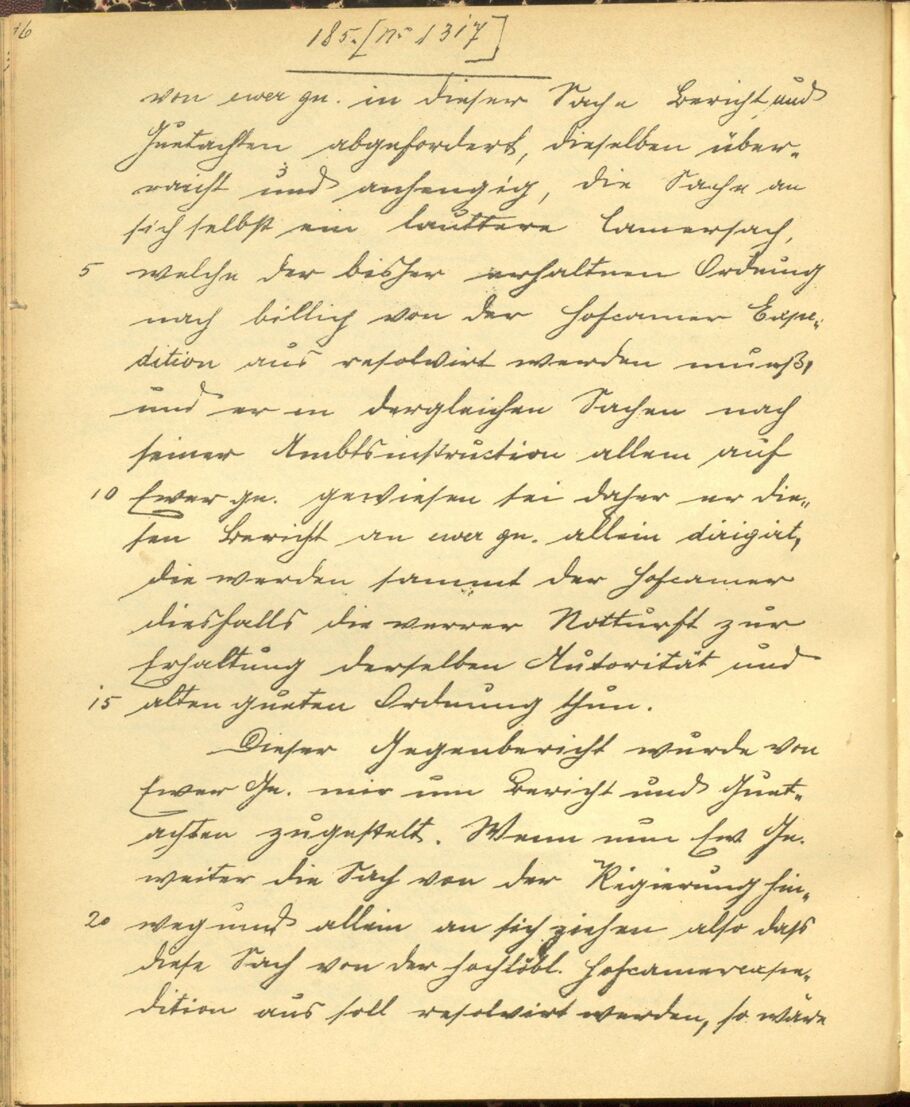 16
185. [No 1317]
von ewer gn. in dieser Sache Bericht und
Guetachten abgefordert, dieselben über-
raicht und anhengig, die Sache an
sich selbst ein lauttere Camersach,
5 welche der bisher erhaltnen Ordnung
nach billich von der Hofcamer Expe-
dition aus resolvirt werden muess,
und er in dergleichen Sachen nach
seiner Ambtsinstruction allein auf
10 Ewer gn. gewiesen sei daher er die-
sen Bericht an ewer gn. allein dirigirt,
die werden sammt der Hofcamer
diesfalls die verrer Notturft zur
Erhaltung derselben Autorität und
15 alten gueten Ordnung thun.
Dieser Gegenbericht wurde von
Ewer Gn. mir um Bericht und Guet-
achten zugestelt. Wenn nun Ew. Gn.
weiter die Sach von der Regierung hin-
20 weg und allein an sich ziehen also dass
diese Sach von der hochlöbl. Hofcamerexpe-
dition aus soll resolvirt werden, so wäre